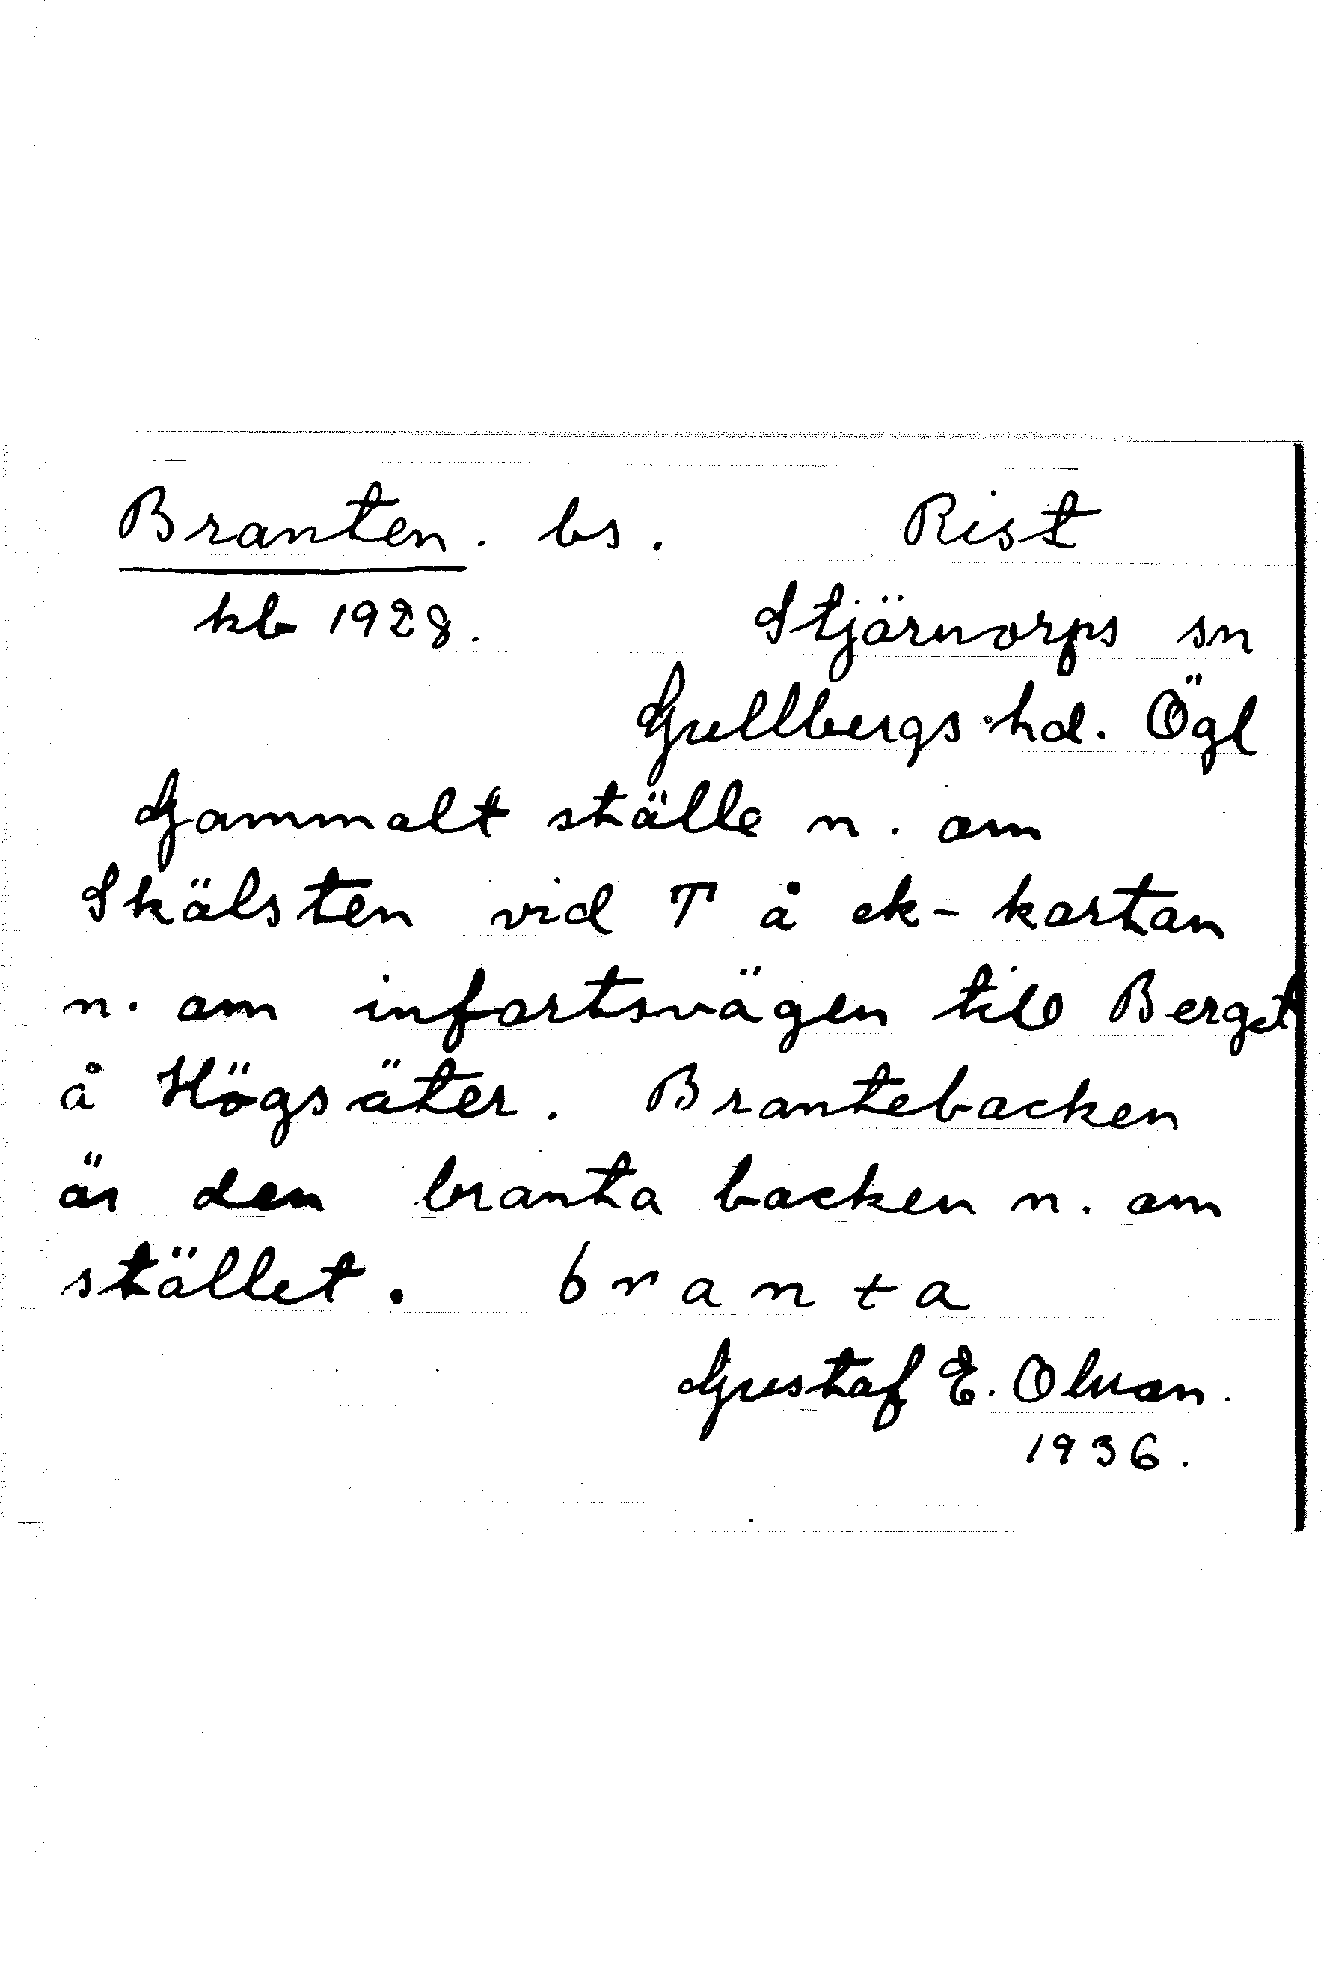 Branten. bs. Rist
kb 1928. Stjärnorps sn
Gullbergs hd. Ögl
Gammalt ställe n. om
Skälsten vid T å ek-kartan
n. om infartsvägen till Berget
å Högsäter. Brantebacken
är den branta backen n. om
stället. branta
Gustaf E. Olvan.
1936.